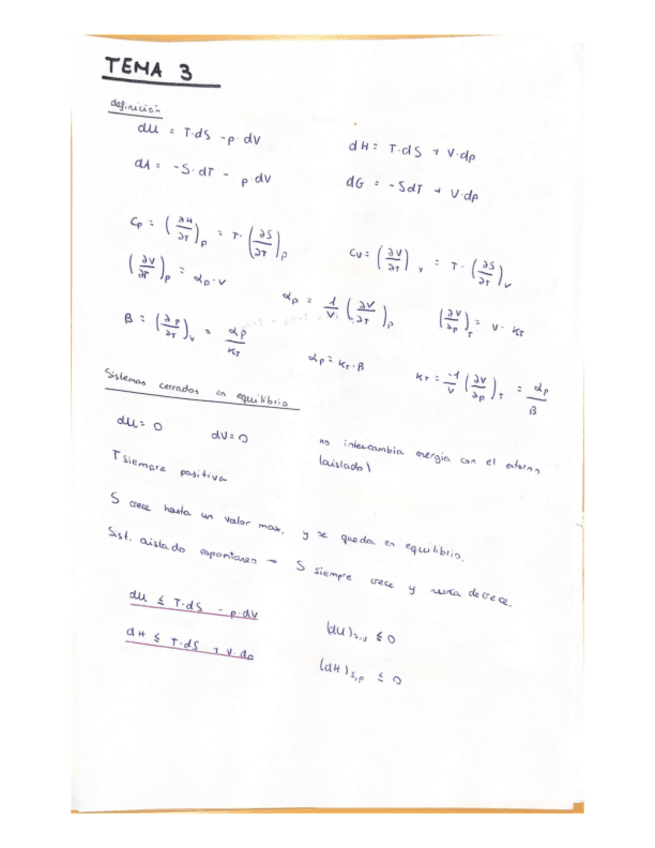 TEMA 3
definición
dU = T·dS - p·dV
dH = T·dS + V·dp
dA = -S·dT - p·dV
dG = -SdT + V·dp
Cp = (∂H/∂T)p = T·(∂S/∂T)p
Cv = (∂V/∂T)v = T·(∂S/∂T)v
(∂V/∂T)p = αp·V
αp = 1/V (∂V/∂T)p
(∂V/∂p)T = V·KT
β = (∂p/∂T)v = αp/KT
αp = KT·β
KT = -1/V (∂V/∂p)T = αp/β
Sistemas cerrados en equilibrio
dU = 0
dV = 0
no intercambia energia con el externo
(aislado)
T siempre positiva
S crece hasta un valor max. y se queda en equilibrio.
Sist. aislado espontaneo → S siempre crece y nunca decrece.
dU ≤ T·dS - p·dV
(dU)s,v ≤ 0
dH ≤ T·dS + V·dp
(dH)s,p ≤ 0